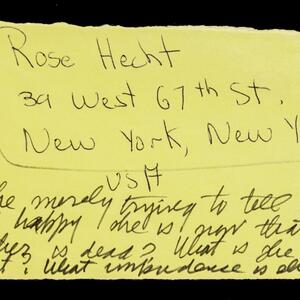 Rose Hecht
39 West 67th St.
New York, New Y
USA
he merely trying to tell
happy she is now that
is dead? What is she
? What impudence is